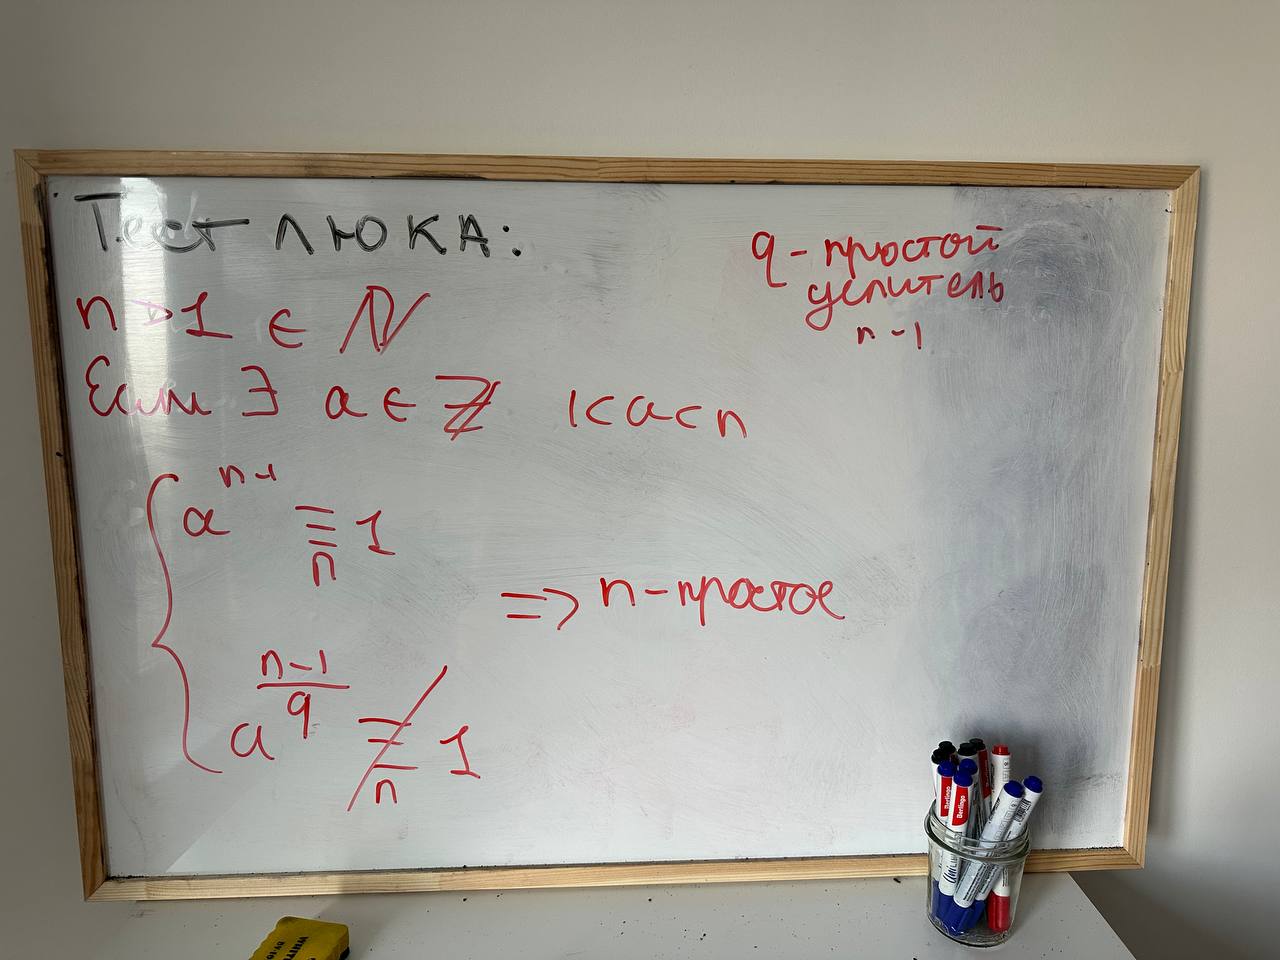 Тест ЛЮКА:
n > 1 ∈ ℕ
Если ∃ a ∈ ℤ 1<a<n
a^{n-1} ≡_n 1
a^{\frac{n-1}{q}} ≢_n 1
=> n - простое
q - простой
делитель
n - 1
Berlingo
Berlingo